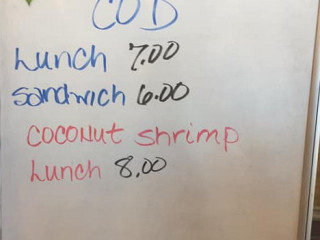 COD
Lunch 7.00
Sandwich 6.00
COCONUT Shrimp
Lunch 8.00